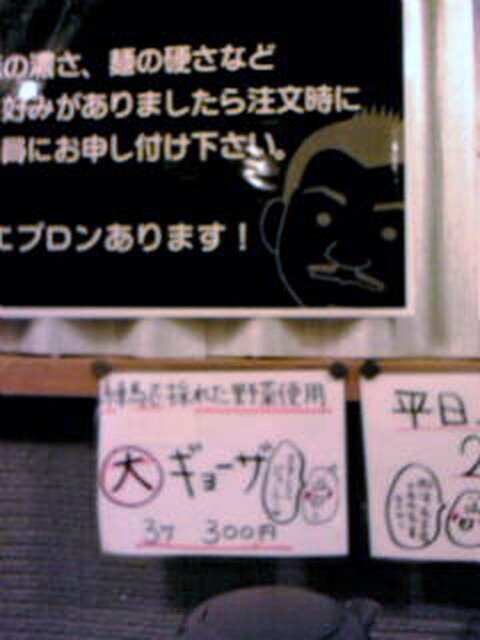 の濃さ、麺の硬さなど
好みがありましたら注文時に
員にお申し付け下さい。
エプロンあります！
練馬で採れた野菜使用
大 ギョーザ
3ケ 300円
平日
2